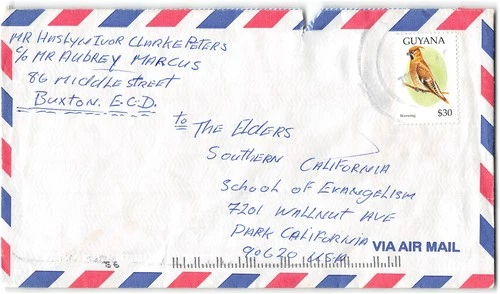 MR HASLYN IVOR CLARKE PETERS
C/o MR AUBREY MARCUS
86 MIDDLE STREET
BUXTON. E.C.D.
GUYANA
Waxwing
$30
To THE ELDERS
SOUTHERN CALIFORNIA
SCHOOL OF EVANGELISM
7201 WALLNUT AVE
PARK CALIFORNIA
90620 USA
VIA AIR MAIL